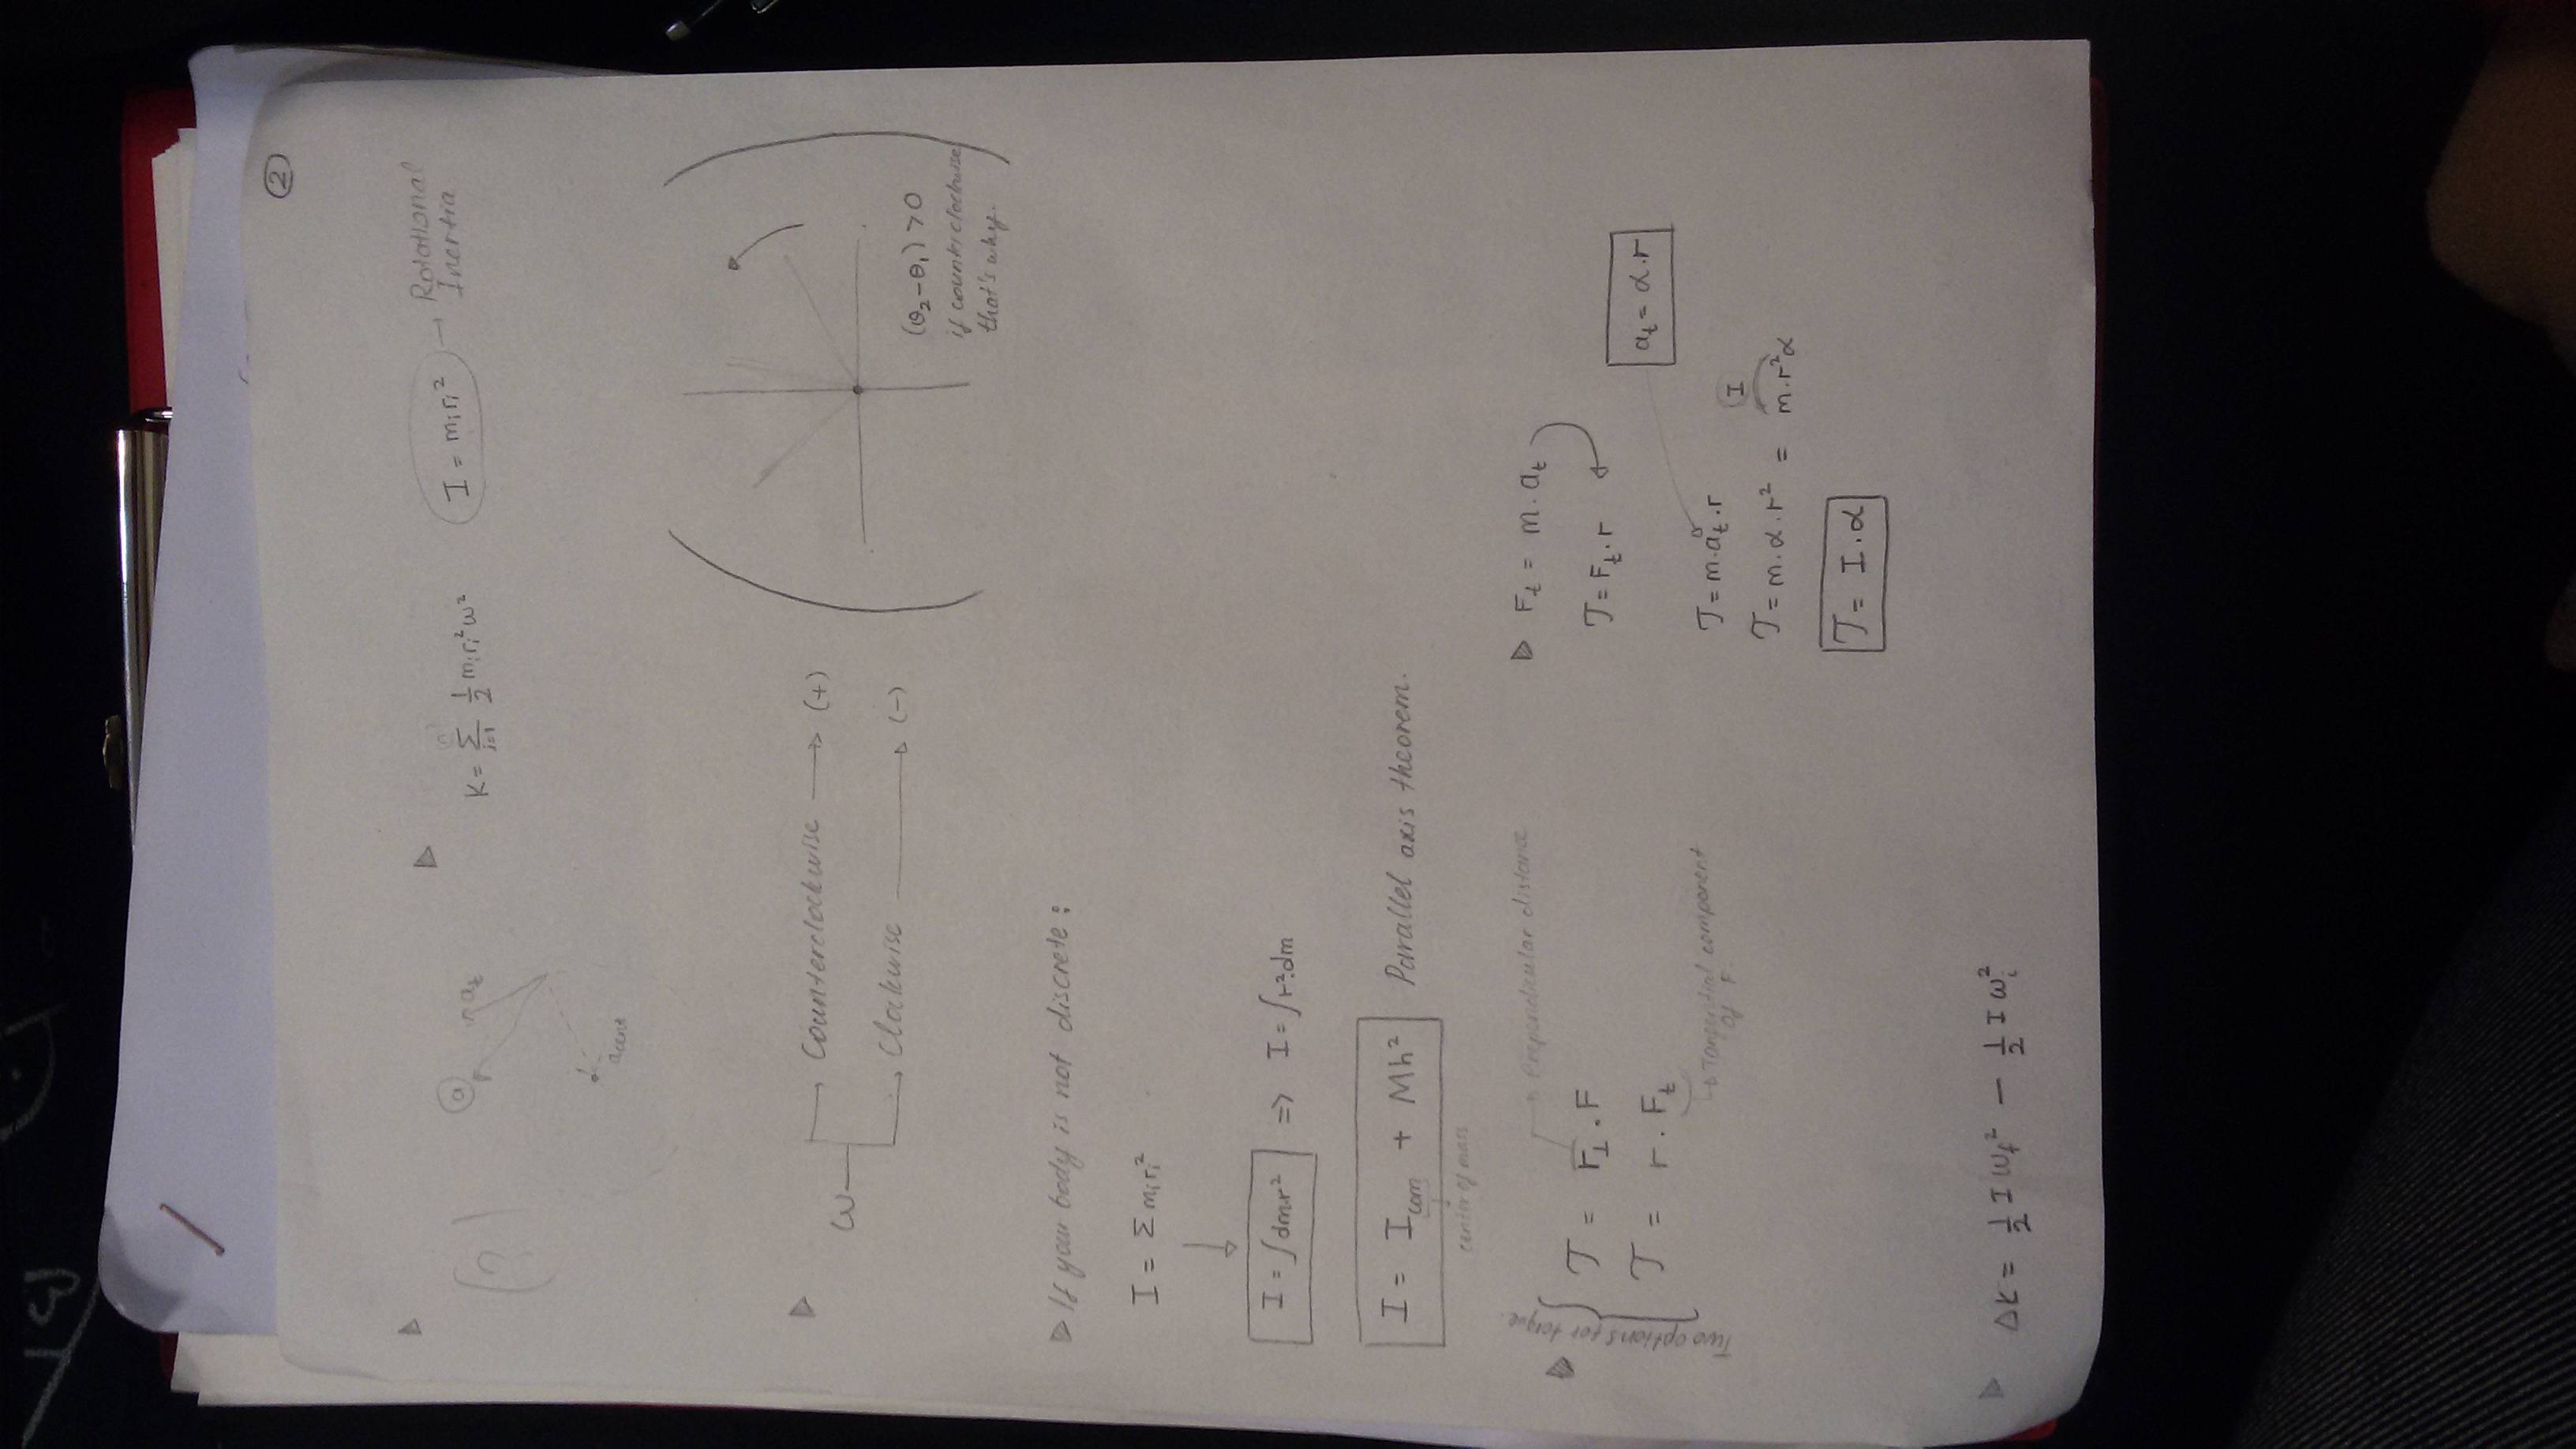 ②
(?)
a
a_t
a_cent
K = Σ_{i=1}^{n} 1/2 m_i r_i² ω²
I = m_i r_i² → Rotational Inertia
ω
Counterclockwise → (+)
Clockwise → (-)
(θ₂-θ₁) > 0
if counterclockwise
that's why.
If your body is not discrete:
I = Σ m_i r_i²
I = ∫dm.r² => I = ∫r².dm
I = I_com + Mh² Parallel axis theorem.
center of mass
Two options for torque.
Prependicular distance
τ = r⊥ . F
τ = r . F_t
Tangential component
of F.
F_t = m . a_t
τ = F_t . r
a_t = α . r
τ = m . a_t . r
I
τ = m . α . r² = m . r² α
τ = I . α
ΔK = 1/2 I ω_f² − 1/2 I ω_i²